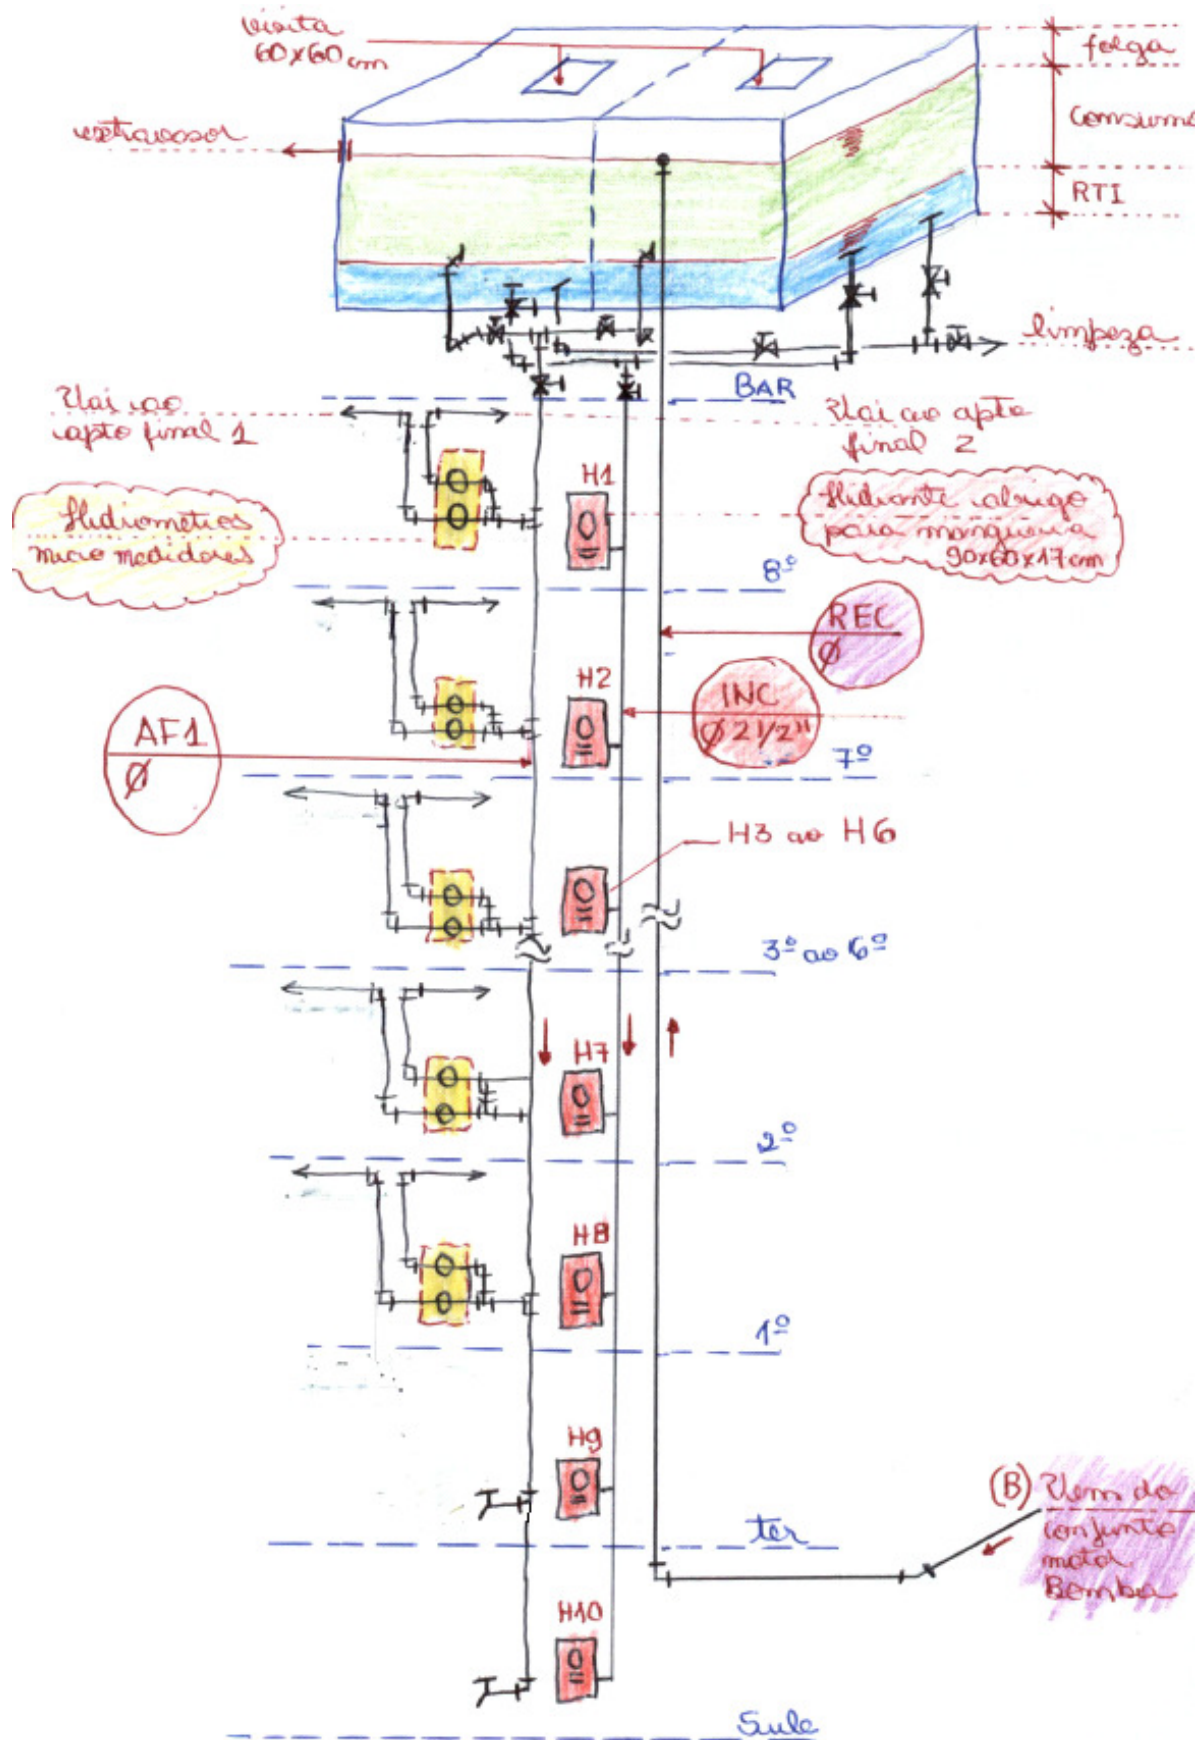 visita
60x60cm
folga
extravasor
consumo
RTI
limpeza
BAR
Vai ao
apto final 1
Vai ao apto
final 2
H1
Hidrômetros
micro medidores
Hidrante abrigo
para mangueira
90x60x17cm
8º
REC
Ø
H2
INC
Ø 2 1/2"
AF1
Ø
7º
H3 ao H6
3º ao 6º
H7
2º
H8
1º
H9
(B) Vem do
conjunto
motor
Bomba
ter
H10
Sub